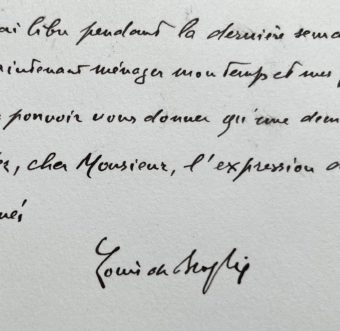 ai libre pendant la dernière sema
maintenant ménager mon temps et mes
pouvoir vous donner qu'une dem
cher Monsieur, l'expression d
Louis de Broglie